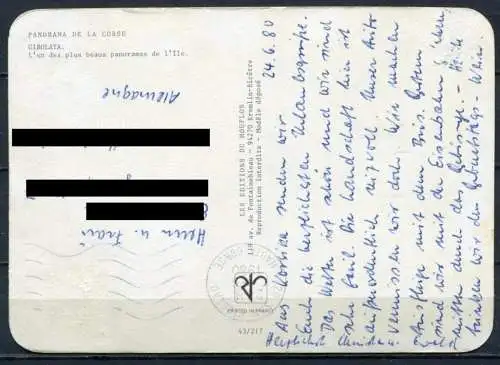 PANORAMA DE LA CORSE
GIROLATA.
L'un des plus beaux panoramas de l'Ile.
Allemagne
Herrn u. Frau
LES EDITIONS DU MOUFLON
134 av. de Fontainebleau - 94270 Kremlin-Bicêtre
Reproduction interdite - Modèle déposé
43/217
24.6.80
Aus Korsika senden wir
Euch die herzlichsten Urlaubsgrüße.
Das Wetter ist schön und wir sind
sehr faul. Die Landschaft hier ist
außerordentlich reizvoll. Unser Auto
vermissen wir doch. Wir machen
Ausflüge mit dem Bus. Gestern
sind wir mit der Eisenbahn
mitten durch das Gebirge. - Heute
trinken wir den Geburtstags-
Herzlichst